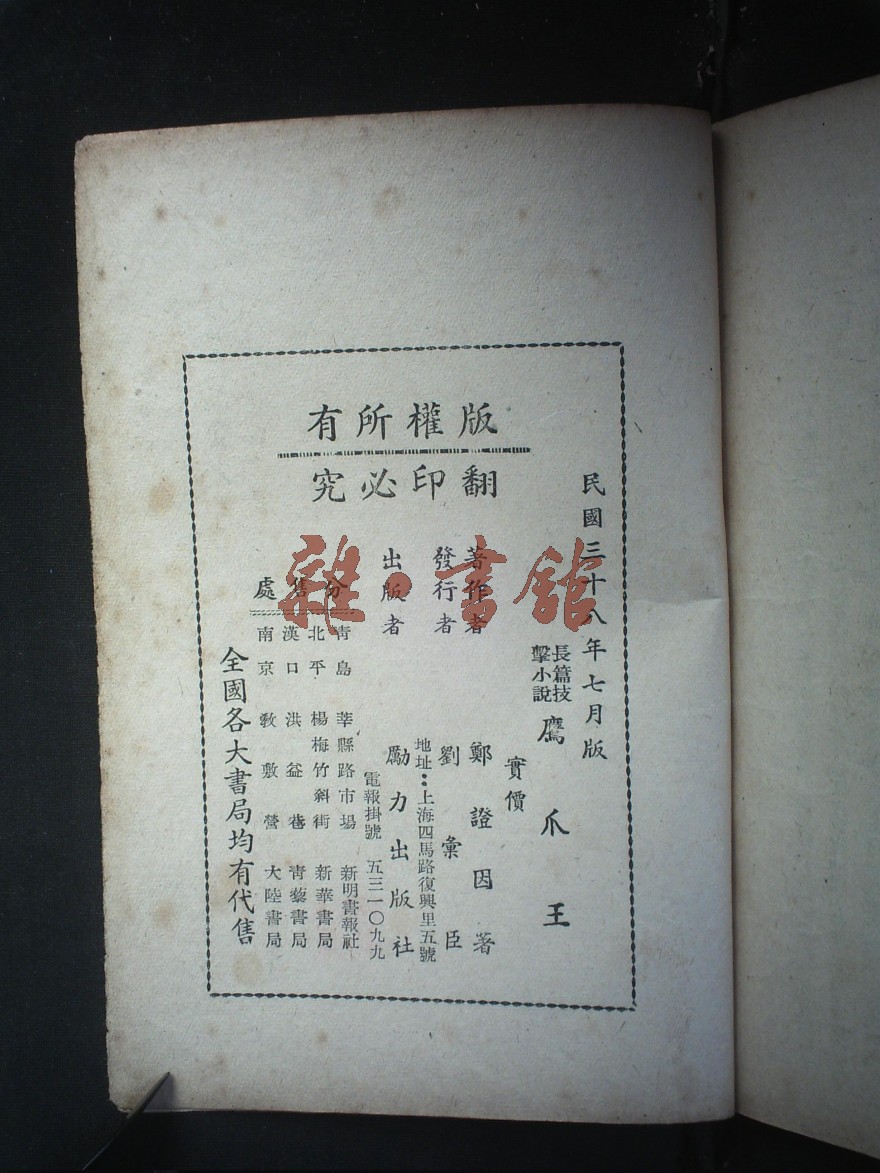 版權所有
翻印必究
民國三十八年七月版
長篇技擊小說 鷹爪王
實價
著作者 鄭證因著
發行者 劉彙臣
地址：上海四馬路復興里五號
出版者 勵力出版社
電報掛號 五三一〇九九
分售處
青島 莘縣路市場 新明書報社
北平 楊梅竹斜街 新華書局
漢口 洪益巷 青藜書局
南京 敎敷營 大陸書局
全國各大書局均有代售
雜·書館